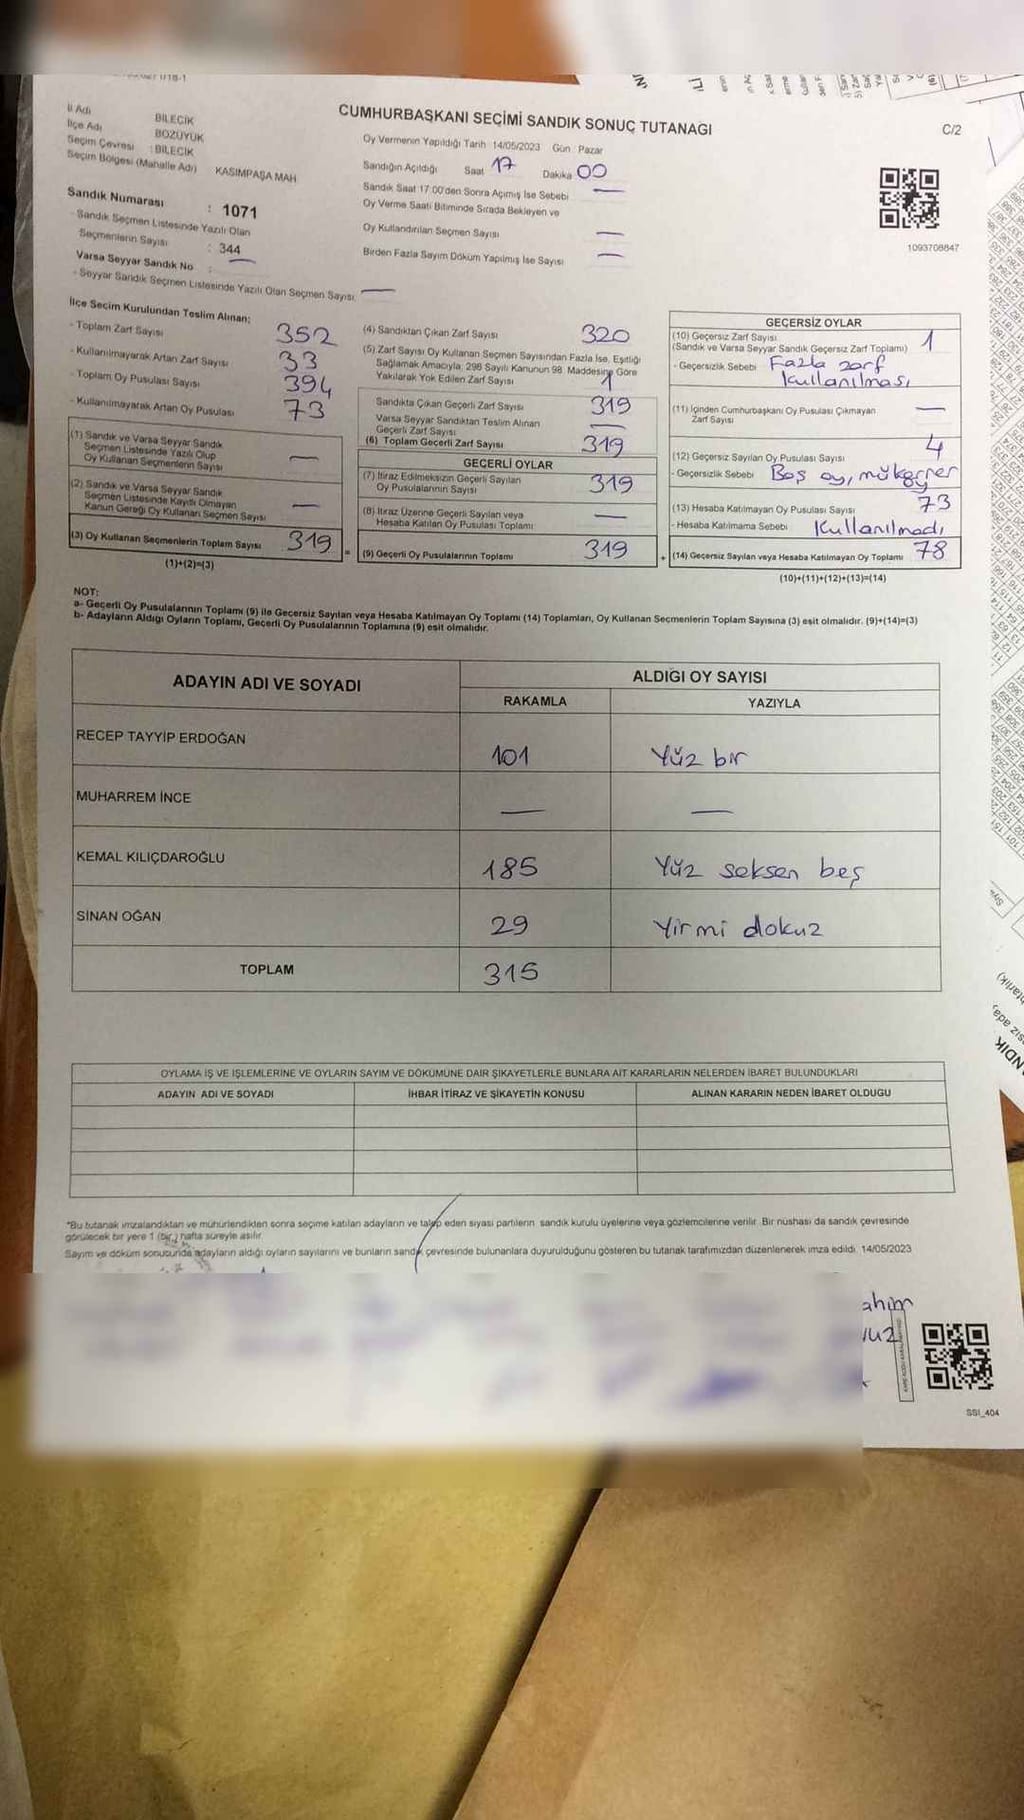 CUMHURBAŞKANI SEÇİMİ SANDIK SONUÇ TUTANAĞI
C/2
İl Adı BİLECİK
İlçe Adı BOZÜYÜK
Seçim Çevresi : BİLECİK
Seçim Bölgesi (Mahalle Adı) KASIMPAŞA MAH
Sandık Numarası : 1071
- Sandık Seçmen Listesinde Yazılı Olan
Seçmenlerin Sayısı : 344
Varsa Seyyar Sandık No : —
- Seyyar Sandık Seçmen Listesinde Yazılı Olan Seçmen Sayısı —
Oy Vermenin Yapıldığı Tarih 14/05/2023 Gün : Pazar
Sandığın Açıldığı Saat 17 Dakika 00
Sandık Saat 17:00'den Sonra Açımış İse Sebebi —
Oy Verme Saati Bitiminde Sırada Bekleyen ve
Oy Kullandırılan Seçmen Sayısı —
Birden Fazla Sayım Döküm Yapılmış İse Sayısı —
1093708847
İlçe Seçim Kurulundan Teslim Alınan:
- Toplam Zarf Sayısı 352
- Kullanılmayarak Artan Zarf Sayısı 33
- Toplam Oy Pusulası Sayısı 394
- Kullanılmayarak Artan Oy Pusulası 73
(1) Sandık ve Varsa Seyyar Sandık
Seçmen Listesinde Yazılı Olup
Oy Kullanan Seçmenlerin Sayısı —
(2) Sandık ve Varsa Seyyar Sandık
Seçmen Listesinde Kayıtlı Olmayan
Kanun Gereği Oy Kullanan Seçmen Sayısı —
(3) Oy Kullanan Seçmenlerin Toplam Sayısı 319
(1)+(2)=(3)
(4) Sandıktan Çıkan Zarf Sayısı 320
(5) Zarf Sayısı Oy Kullanan Seçmen Sayısından Fazla İse, Eşitliği
Sağlamak Amacıyla, 298 Sayılı Kanunun 98. Maddesine Göre
Yakılarak Yok Edilen Zarf Sayısı 1
Sandıkta Çıkan Geçerli Zarf Sayısı 319
Varsa Seyyar Sandıktan Teslim Alınan
Geçerli Zarf Sayısı —
(6) Toplam Geçerli Zarf Sayısı 319
GEÇERLİ OYLAR
(7) İtiraz Edilmeksizin Geçerli Sayılan
Oy Pusulalarının Sayısı 319
(8) İtiraz Üzerine Geçerli Sayılan veya
Hesaba Katılan Oy Pusulası Toplamı —
(9) Geçerli Oy Pusulalarının Toplamı 319
GEÇERSİZ OYLAR
(10) Geçersiz Zarf Sayısı 1
(Sandık ve Varsa Seyyar Sandık Geçersiz Zarf Toplamı)
- Geçersizlik Sebebi Fazla zarf
kullanılması
(11) İçinden Cumhurbaşkanı Oy Pusulası Çıkmayan
Zarf Sayısı —
(12) Geçersiz Sayılan Oy Pusulası Sayısı 4
- Geçersizlik Sebebi Boş oy, mükerrer
(13) Hesaba Katılmayan Oy Pusulası Sayısı 73
- Hesaba Katılmama Sebebi Kullanılmadı
(14) Geçersiz Sayılan veya Hesaba Katılmayan Oy Toplamı 78
(10)+(11)+(12)+(13)=(14)
NOT:
a- Geçerli Oy Pusulalarının Toplamı (9) ile Geçersiz Sayılan veya Hesaba Katılmayan Oy Toplamı (14) Toplamları, Oy Kullanan Seçmenlerin Toplam Sayısına (3) eşit olmalıdır. (9)+(14)=(3)
b- Adayların Aldığı Oyların Toplamı, Geçerli Oy Pusulalarının Toplamına (9) eşit olmalıdır.
ADAYIN ADI VE SOYADI ALDIĞI OY SAYISI
RAKAMLA YAZIYLA
RECEP TAYYİP ERDOĞAN 101 Yüz bir
MUHARREM İNCE — —
KEMAL KILIÇDAROĞLU 185 Yüz seksen beş
SİNAN OĞAN 29 Yirmi dokuz
TOPLAM 315
OYLAMA İŞ VE İŞLEMLERİNE VE OYLARIN SAYIM VE DÖKÜMÜNE DAİR ŞİKAYETLERLE BUNLARA AİT KARARLARIN NELERDEN İBARET BULUNDUKLARI
ADAYIN ADI VE SOYADI İHBAR İTİRAZ VE ŞİKAYETİN KONUSU ALINAN KARARIN NEDEN İBARET OLDUĞU
*Bu tutanak imzalandıktan ve mühürlendikten sonra seçime katılan adayların ve talep eden siyasi partilerin sandık kurulu üyelerine veya gözlemcilerine verilir. Bir nüshası da sandık çevresinde
görülecek bir yere 1 (bir) hafta süreyle asılır.
Sayım ve döküm sonucunda adayların aldığı oyların sayılarını ve bunların sandık çevresinde bulunanlara duyurulduğunu gösteren bu tutanak tarafımızdan düzenlenerek imza edildi. 14/05/2023
ahim
vuz
SSI_404